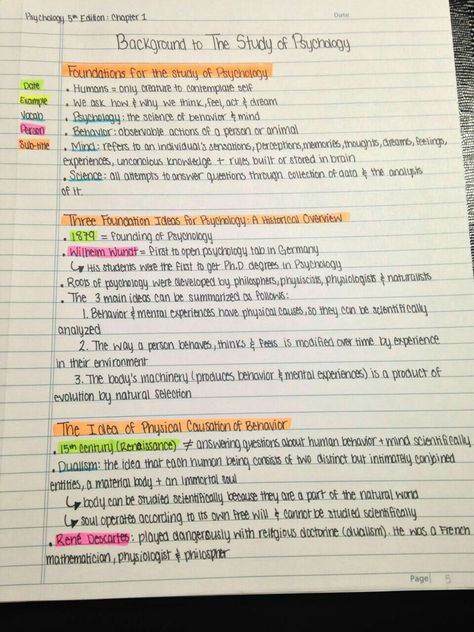 Psychology 5th Edition: Chapter 1
Date
Background to The Study of Psychology
Foundations for the study of Psychology
Date
• Humans = only creature to contemplate self
Example
• We ask how & why we think, feel, act & dream
Vocab
• Psychology: the science of behavior & mind
Person
• Behavior: observable actions of a person or animal
Sub-title
• Mind: refers to an individual's sensations, perceptions, memories, thoughts, dreams, feelings,
experiences, unconcious knowledge + rules built or stored in brain
• Science: all attempts to answer questions through collection of data & the analysis
of it.
Three Foundation Ideas for Psychology: A Historical Overview
• 1879 = founding of Psychology
• Wilhelm Wundt = first to open psychology lab in Germany
↳ His students were the first to get Ph.D. degrees in Psychology
• Roots of psychology were developed by philosphers, physicists, physiologists & naturalists
• The 3 main ideas can be summarized as follows:
1. Behavior & mental experiences have physical causes, so they can be scientifically
analyzed
2. The way a person behaves, thinks & feels is modified over time by experience
in their environment
3. The body's machinery (produces behavior & mental experiences) is a product of
evolution by natural selection
The Idea of Physical Causation of Behavior
• 15th Century (Renaissance) ≠ answering questions about human behavior + mind scientifically
• Dualism: the idea that each human being consists of two distinct but intimately conjoined
entities, a material body + an immortal soul
↳ body can be studied scientifically because they are a part of the natural world
↳ soul operates according to its own free will & cannot be studied scientifically
• René Descartes: played dangerously with religious doctorine (dualism). He was a French
mathematician, physiologist & philospher
Page 5